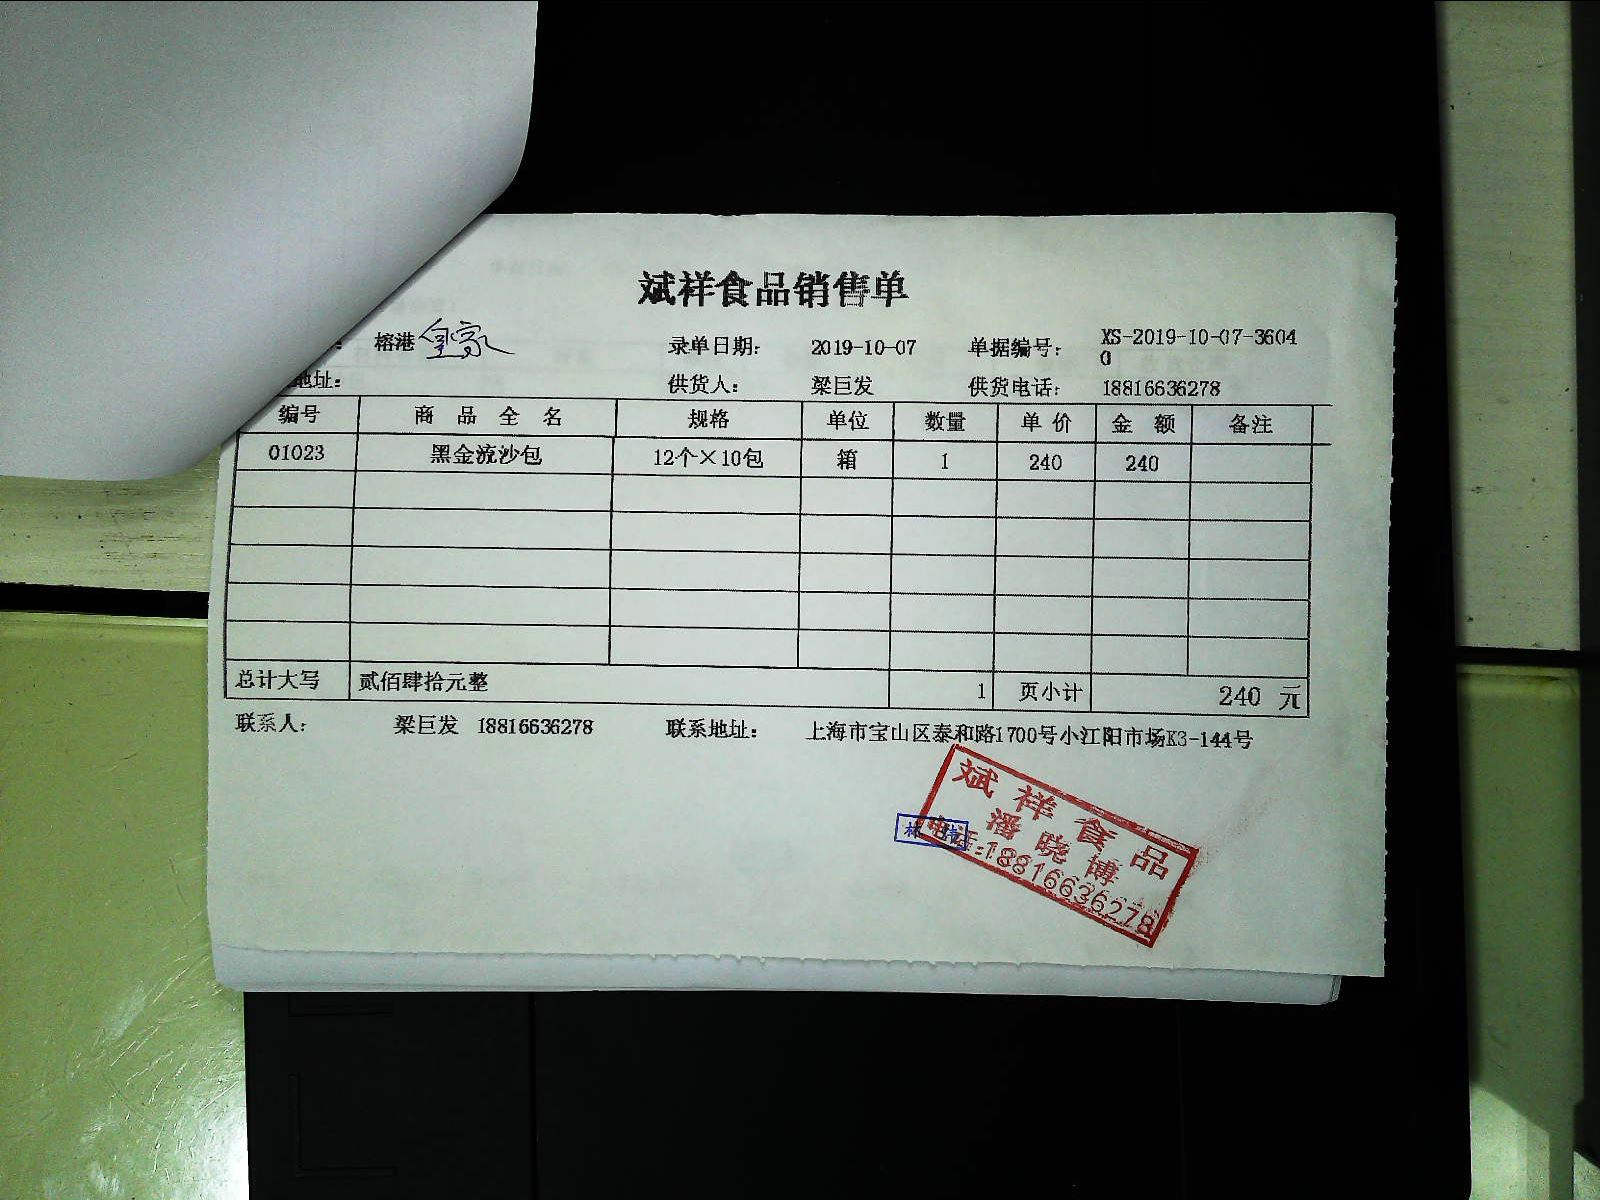 斌祥食品销售单
: 榕港皇家 录单日期: 2019-10-07 单据编号: XS-2019-10-07-3604
0
地址: 供货人: 梁巨发 供货电话: 18816636278
编号 商品全名 规格 单位 数量 单价 金额 备注
01023 黑金流沙包 12个×10包 箱 1 240 240
总计大写 贰佰肆拾元整 1 页小计 240 元
联系人: 梁巨发 18816636278 联系地址: 上海市宝山区泰和路1700号小江阳市场K3-144号
斌祥食品
潘晓博
电话:18816636278